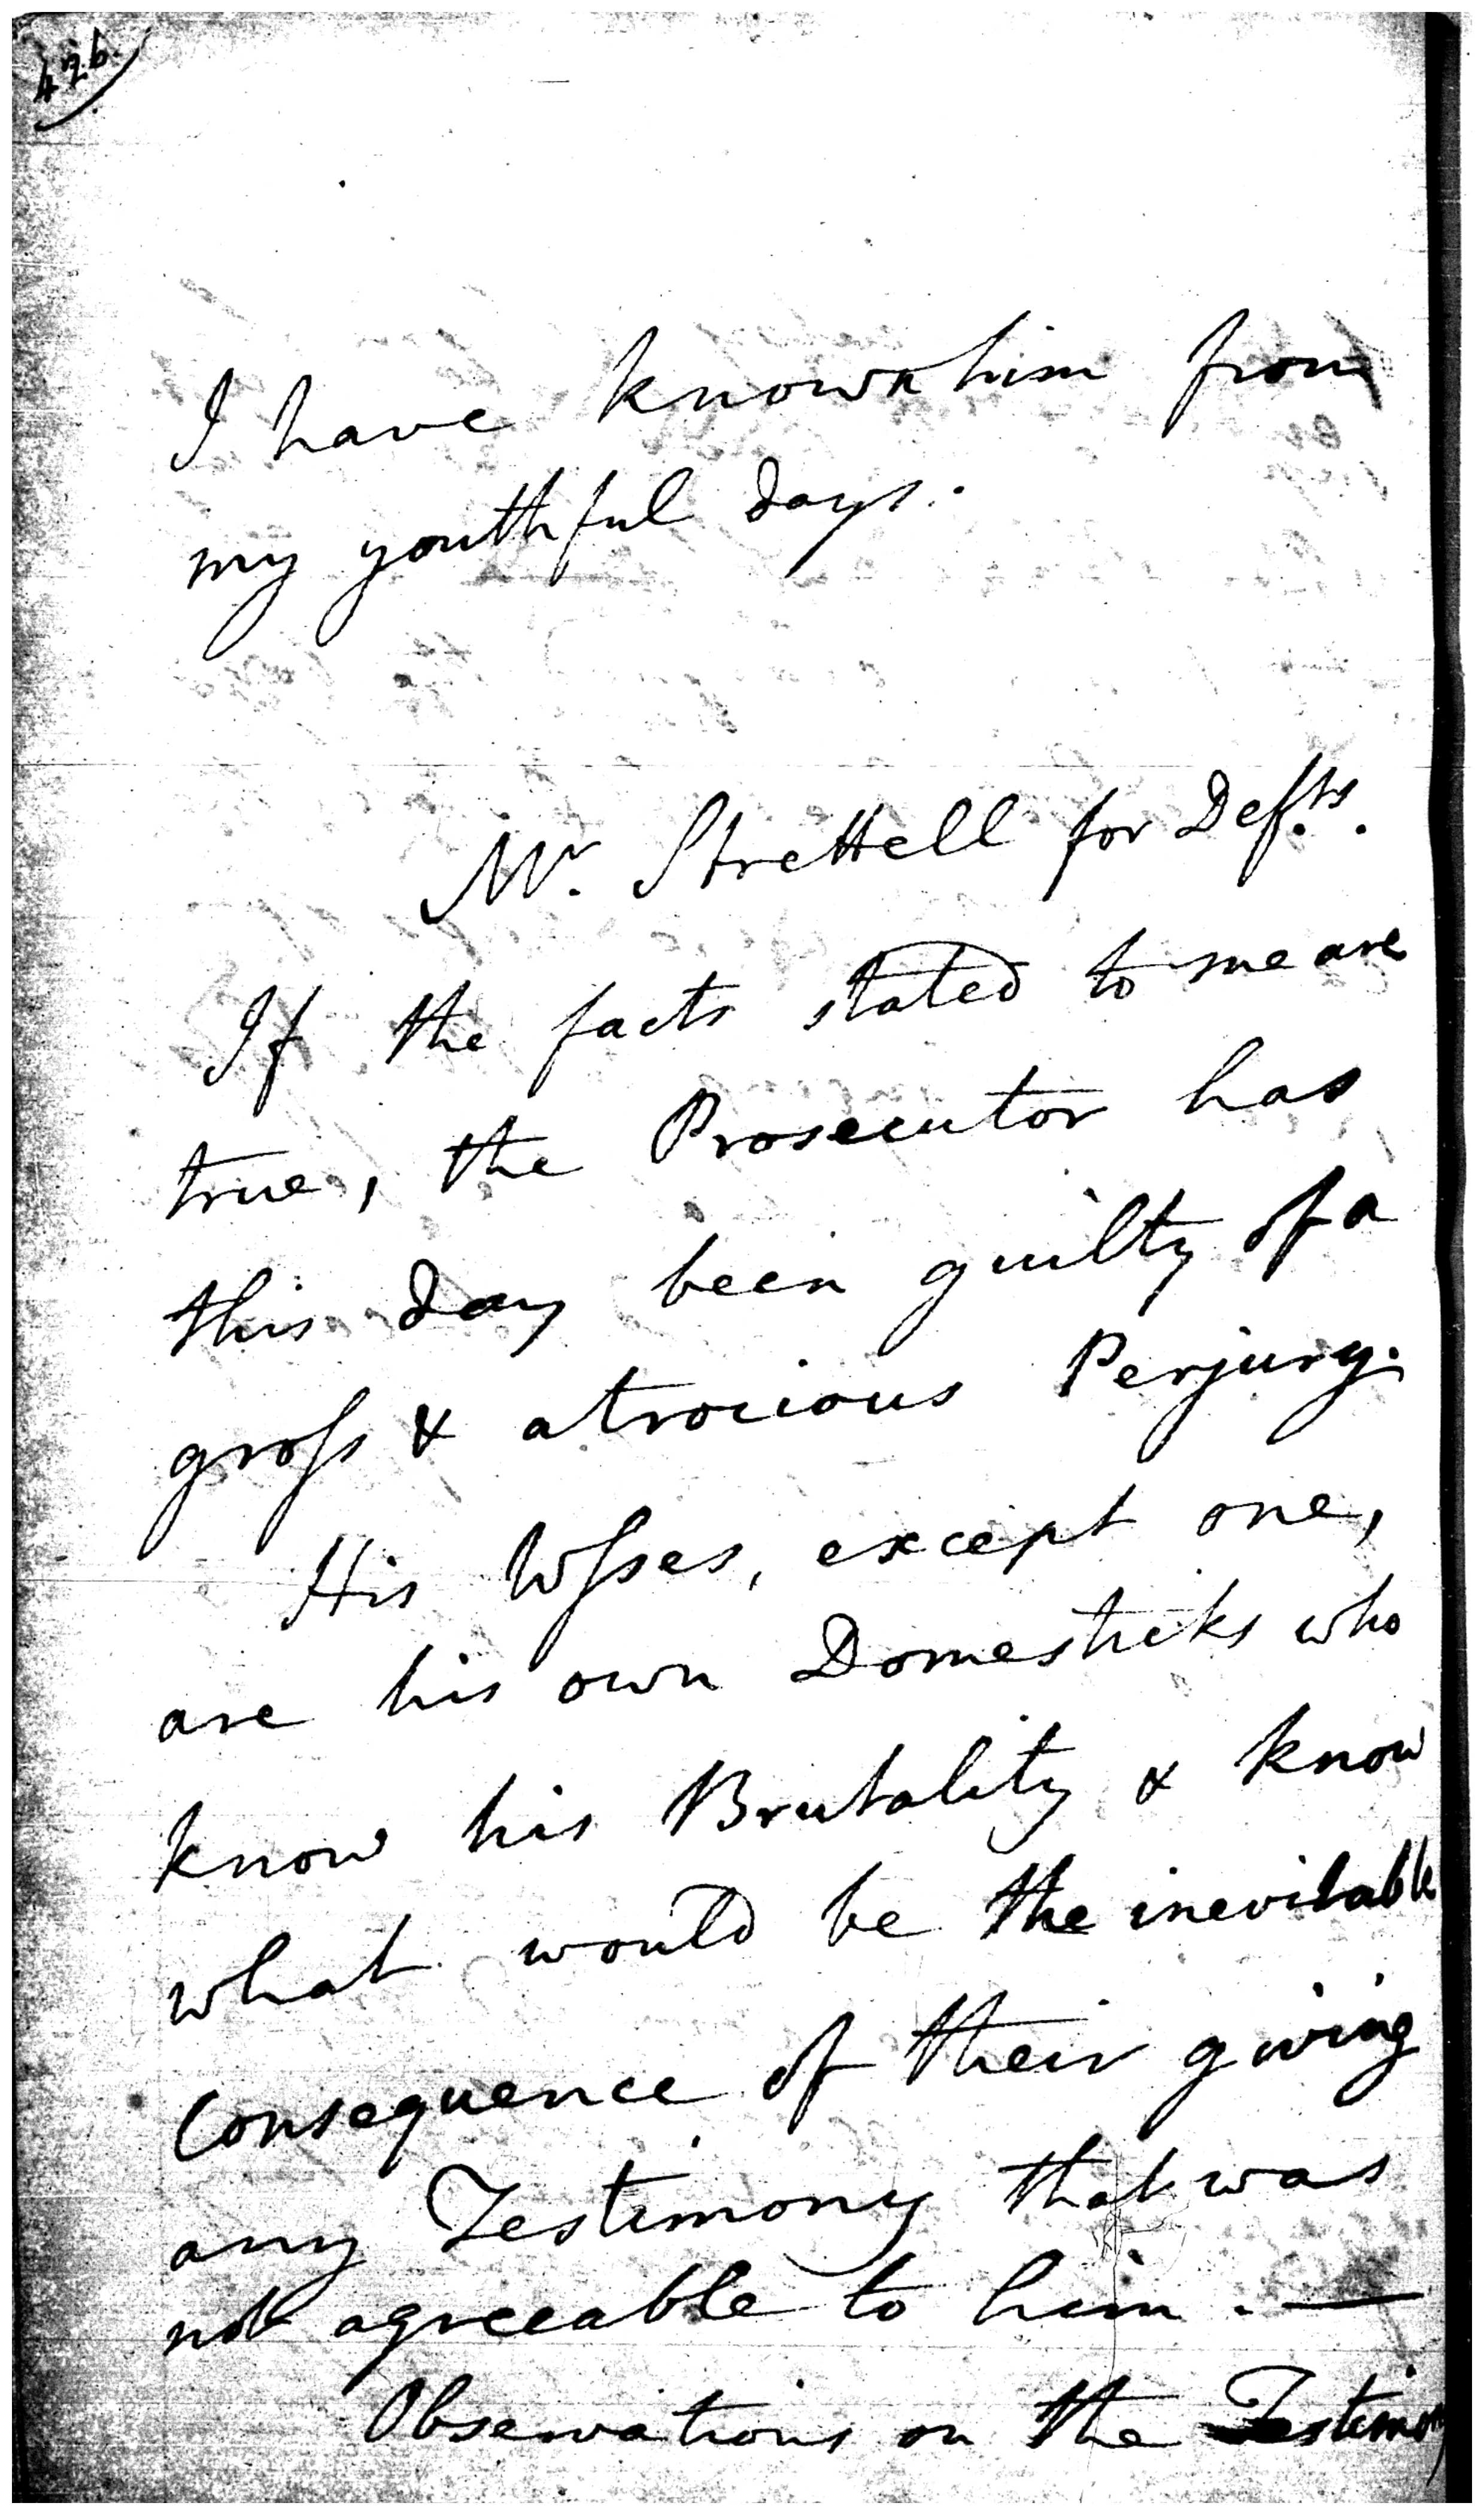 I have known him from
my youthful days.
Mr. Strettell for Defts.
If the facts stated to me are
true, the Prosecutor has
this day been guilty of a
gross & atrocious Perjury.
His Wsses, except one,
are his own Domesticks who
know his Brutality & know
what would be the inevitable
Consequence of their giving
any Testimony that was
not agreeable to him. —
Observations on the Testimony